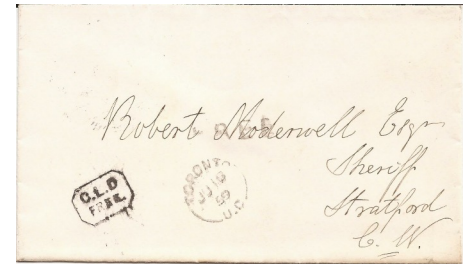 Robert Moderwell Esqr
Sheriff
Stratford
C. W.
C.L.D
FREE.
TORONTO
JU 19
59
U.C.